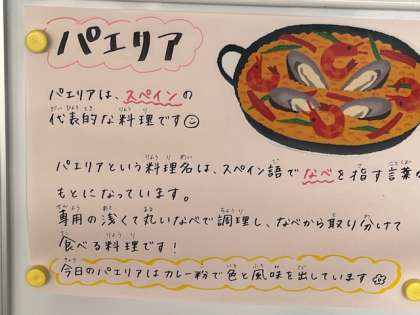 パエリア
パエリアは、スペインの
代表的な料理です
パエリアという料理名は、スペイン語でなべを指す言葉
もとになっています。
専用の浅くて丸いなべで調理し、なべから取り分けて
食べる料理です！
今日のパエリアはカレー粉で色と風味を出しています